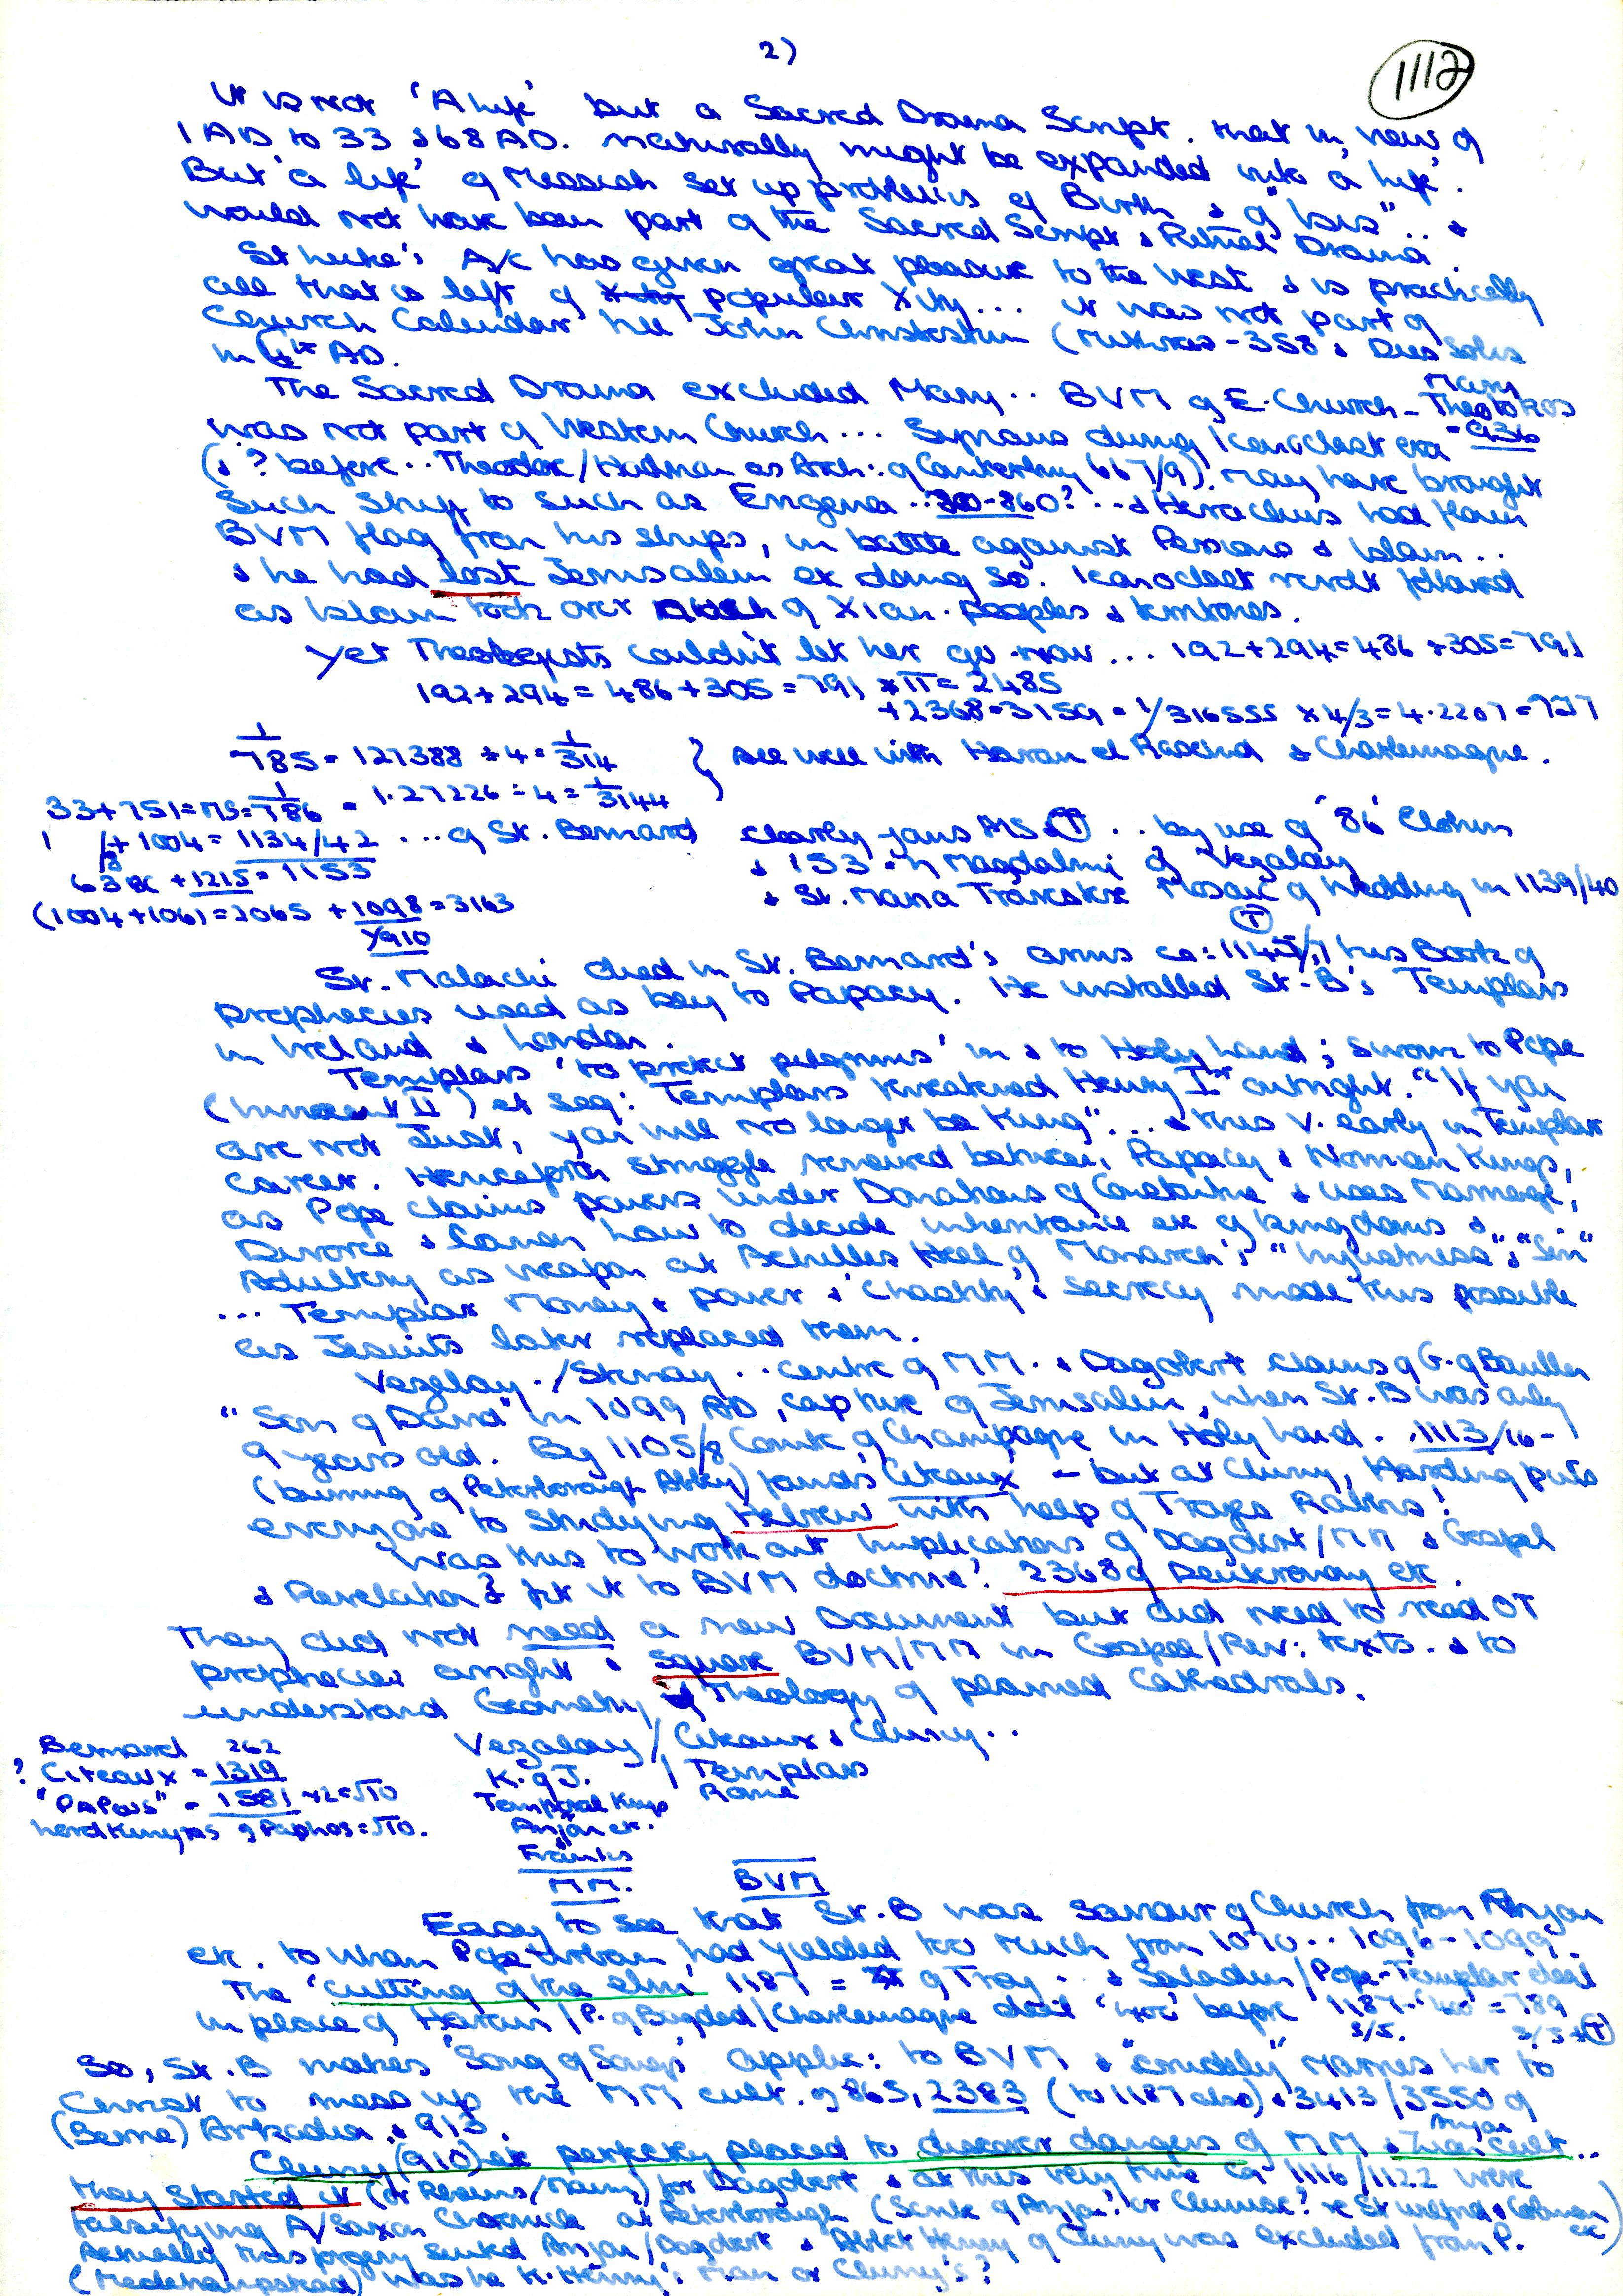 2)
1112
It is not 'A life' but a Sacred Drama Script. that in, view, of
1 AD to 33 & 68 AD. naturally might be expanded into a life'.
But 'a life' of Messiah set up problems of Birth & of "Isis"... &
would not have been part of the Sacred Script & Ritual Drama.
St Luke's A/c has given great pleasure to the West & is practically
all that is left of popular Xity... it was not part of
Church Calendar till John (Mithras - 358 & Dies Solis
in 4th AD.
The Sacred Drama excluded Mary.. BVM of E. Church - Mary Theotokos
was not part of Western Church... Syrians during Iconoclast era = 936
(& ? before.. Theodore/Hadrian as Arch: of Canterbury 667/9). may have brought
such stuff to such as Erigena.. 860? ..& Heraclius had flown
BVM flag from his ships, in battle against Persians & Islam..
& he had lost Jerusalem ex doing so. Iconoclast revolt followed
as Islam took over much of Xian. peoples & territories.
Yet couldn't let her go now... 192+294=486+305=791
192+294=486+305=791 x π = 2485
+2368=3159 = 1/316555 x 4/3 = 4.2207 = 727
1/785 = 127388 ÷ 4 = 1/314 } all well with Haran el Raschid & Charlemagne.
33+751=MS=1/786 = 1.27226 ÷ 4 = 1/3144
1 /+ 1004 = 1134/42 ... of St. Bernard clearly joins MS & T.. by use of '86' Elohim
638 + 1215 = 1153 & 153 = η Magdalini of Vezalay
(1004+1061)=2065 + 1098 = 3163 & St. Maria Trastevere Mosaic of Wedding in 1139/40
Y910
T
St. Malachi died in St. Bernard's arms ca: 1145/7, his Book of
prophecies used as key to Papacy. He installed St-B's Templars
in Ireland & London.
Templars 'to protect pilgrims' in & to Holy Land; sworn to Pope
(Innocent II) et seq: Templars threatened Henry Ist outright. "If you
are not Just, you will no longer be King"... & this v. early in Templar
career. Henceforth struggle renewed between Papacy & Norman Kings,
as Pope claims powers under Donations of Constantine & uses Marriage,
Divorce & Canon Law to decide inheritance etc of kingdoms &...
Adultery as weapon at Achilles Heel of Monarch's "Injustness" & "Sin"
... Templar Money & power & 'Chastity' & secrecy made this possible
as Jesuits later replaced them.
Vezelay./Stenay.. centre of MM. & Dagobert claims of G. of Bouillon
"Son of David" in 1099 AD, capture of Jerusalem, when St. B was only
9 years old. By 1105/8 Comte of Champagne in Holy Land.. 1113/16 -
(burning of Peterborough Abbey) founds Citeaux - but at Cluny, Harding puts
everyone to studying Hebrew with help of Troyes Rabbis!
Was this to work out implications of Dagobert/MM & Gospel
& Revelation & fit it to BVM doctrine? 2368 of Deuteronomy etc.
They did not need a new Document but did need to read OT
prophecies aright & square BVM/MM in Gospel/Rev: texts. & to
understand Geometry & Theology of planned Cathedrals.
Bernard 262
? Citeaux = 1319
"PAPOUS" = 1581 x2=√10
Kinyras of Paphos = √10.
Vezalay / Citeaux & Cluny..
K. of J. / Templars
Temporal Kings Rome
Anjou etc.
Franks
MM. BVM
Easy to see that St. B was Saviour of Church from Anjou
etc. to whom Pope Urban, had yielded too much from 1070.. 1096 - 1099.
The 'cutting of the elm' 1187 = of Troy. & Saladin/Pope-Templar deal
in place of Haroun/P. of Bagdad/Charlemagne deal before 1187. = 789
So, St. B makes 'Song of Songs' applic: to BVM & "crudely" marries her to
Christ to mess up the MM cult. of 865, 2383 (to 1187 also) & 3413/3550 of
(Berne) Arkadia & 913.
Cluny (910) etc perfectly placed to discover dangers of MM & Anjou cult..
they started it (or Rheims/) for Dagobert & at this very time ca 1116/1122 were
falsifying A/Saxon Chronicle at Peterborough (Scribe of Anjou? or Cluniac? re St Wilfrid & Colman etc)
Actually this forgery suited Anjou/Dagobert & Abbot Henry of Cluny was excluded from P.
(Medehampstead) was he K. Henry's man or Cluny's?